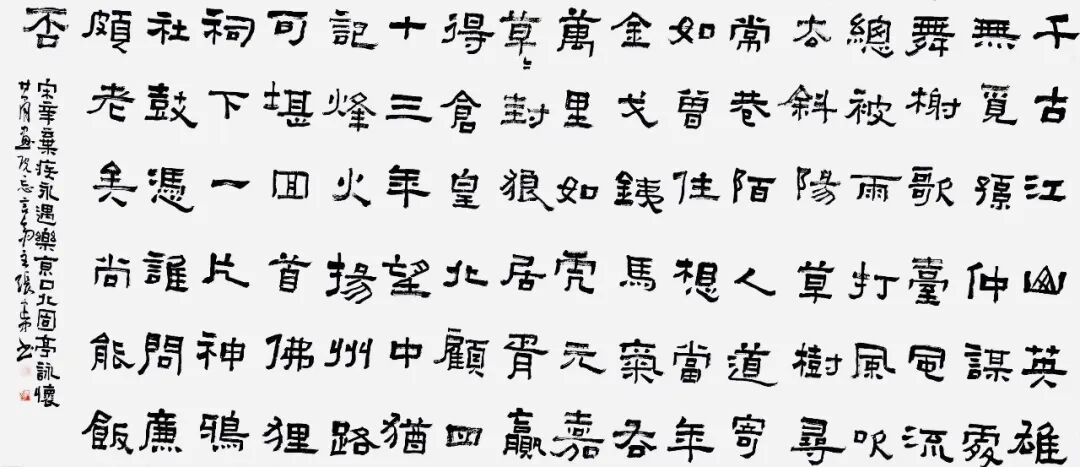 千古江山英雄
無覓孫仲謀處
舞榭歌臺風流
總被雨打風吹
去斜陽草樹尋
常巷陌人道寄
奴曾住想當年
金戈銕馬氣吞
萬里如虎元嘉
草〻封狼居胥贏
得倉皇北顧四
十三年望中猶
記烽火揚州路
可堪回首佛狸
祠下一片神鴉
社鼓憑誰問廉
頗老矣尚能飯
否
宋辛棄疾永遇樂京口北固亭詠懷